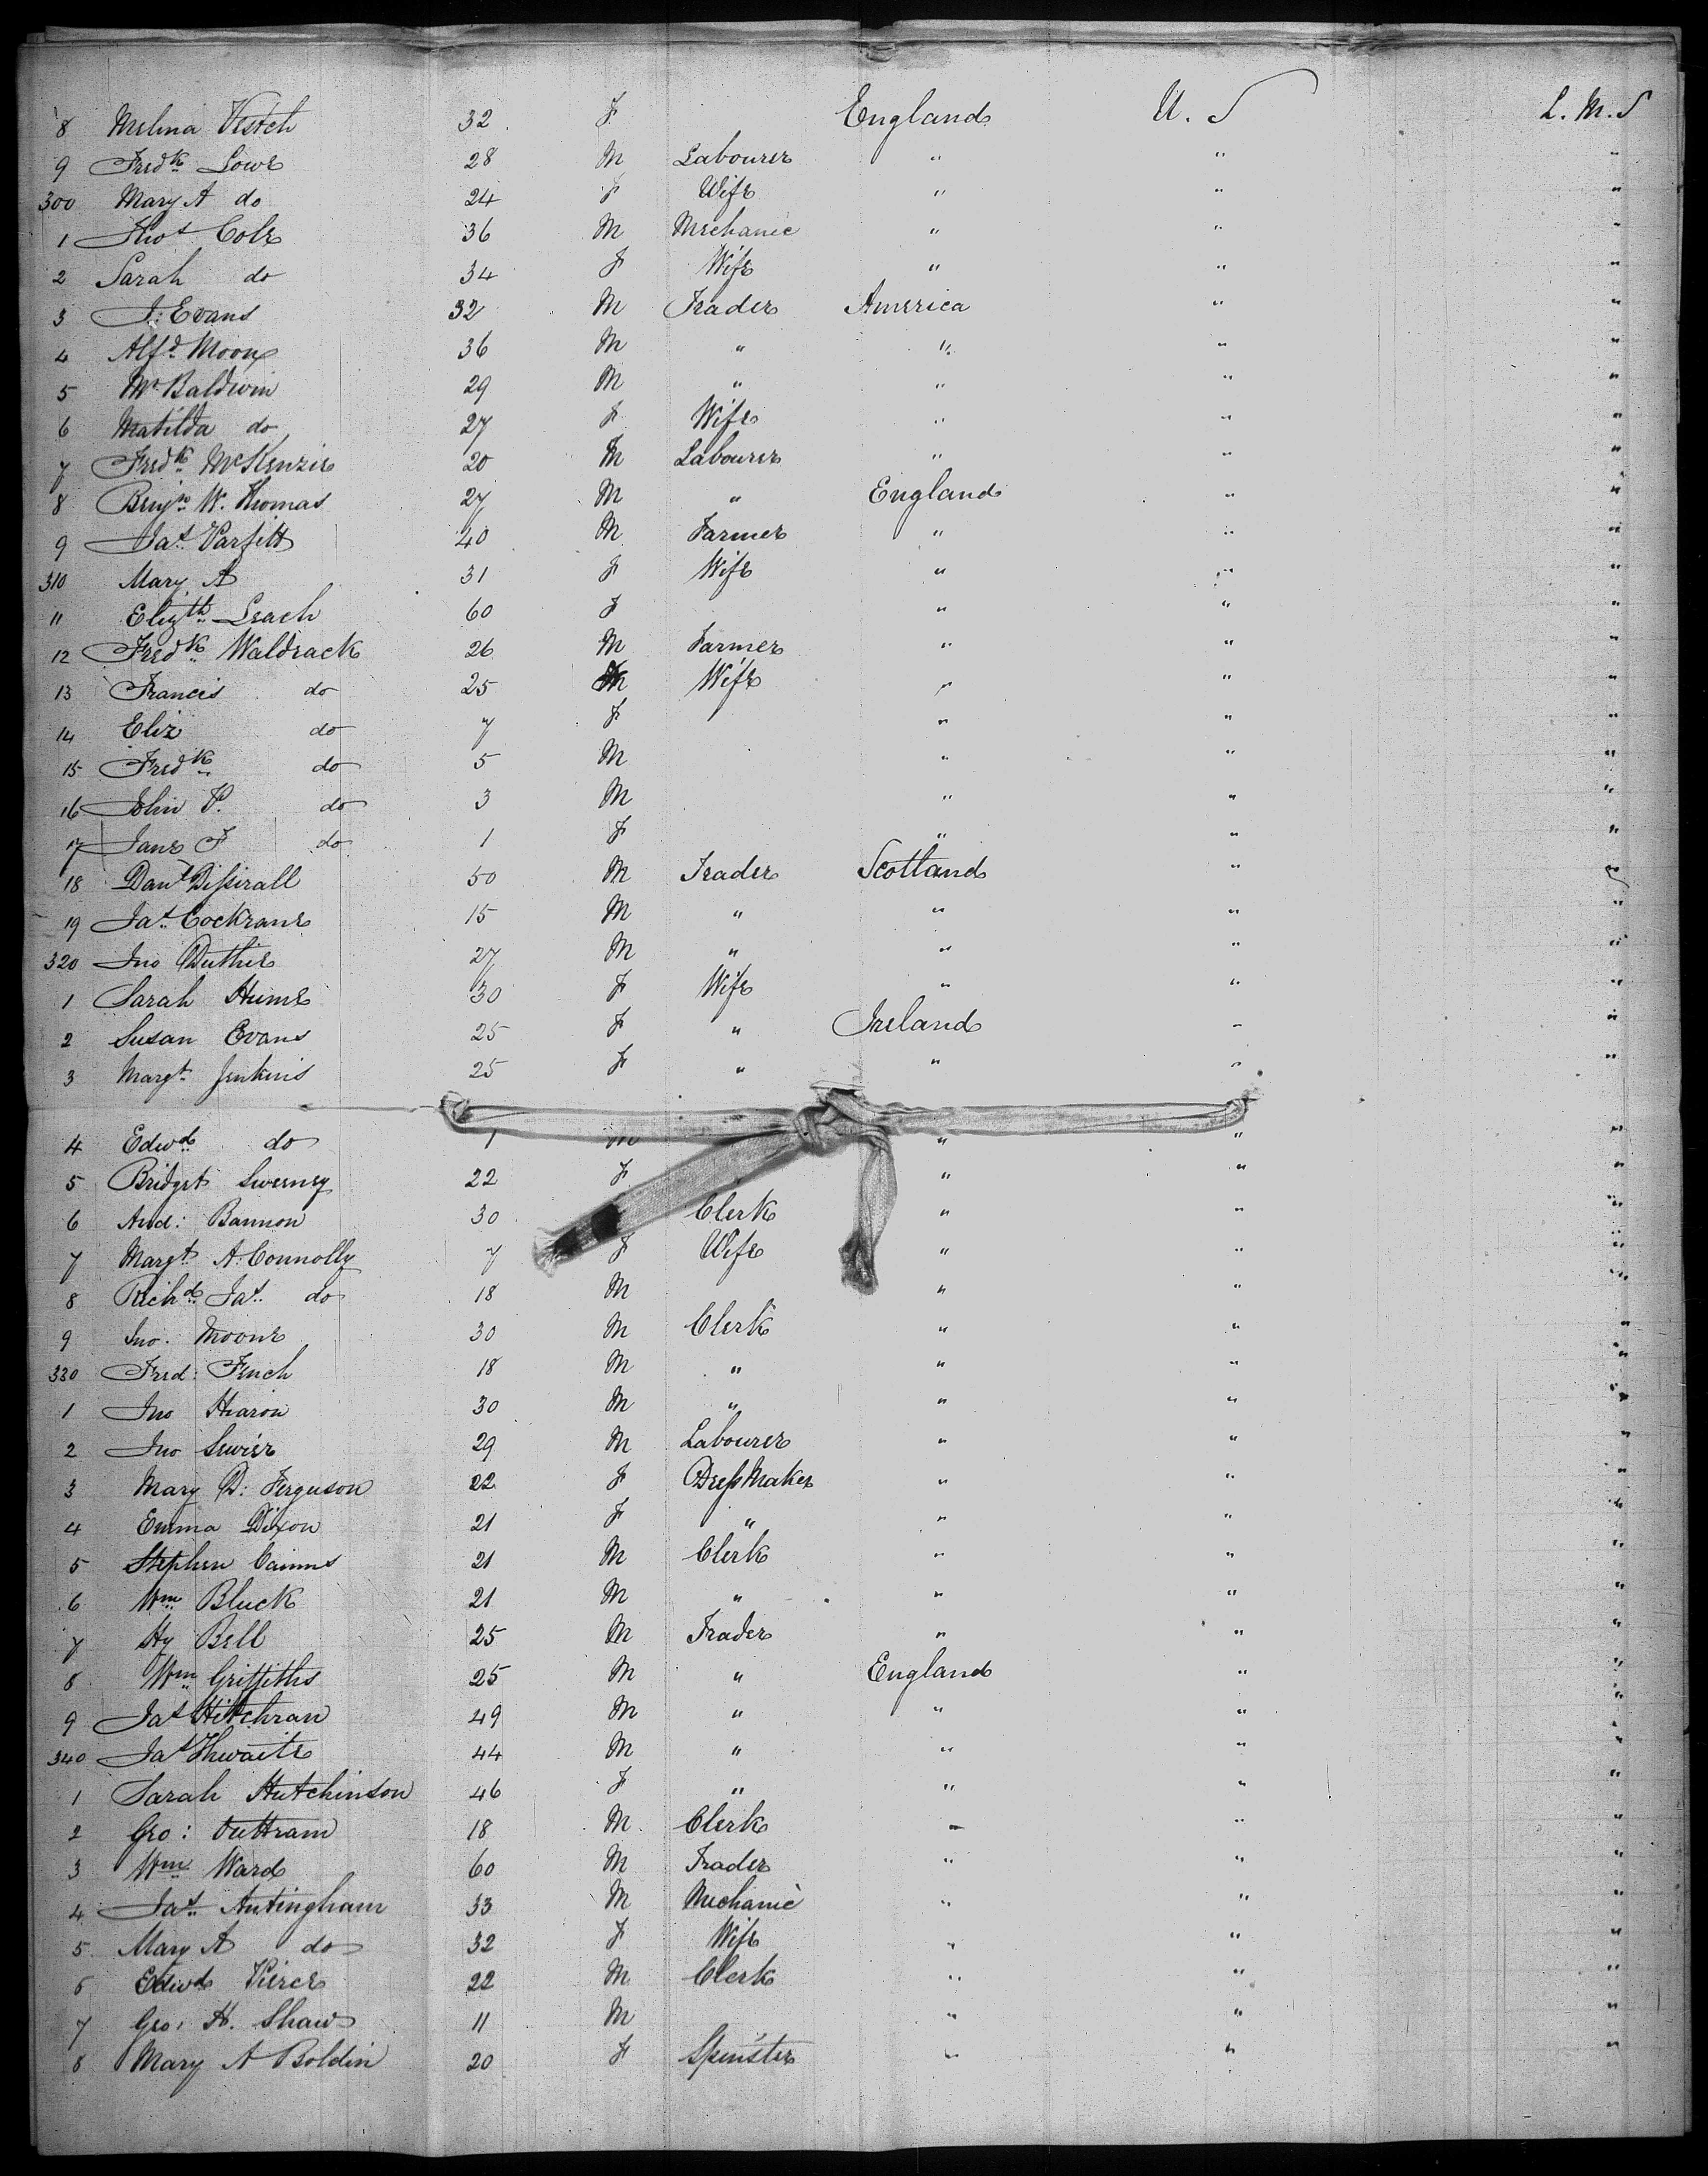 8 Melina Veitch 32 F England U.S L.M.S
9 Fredk Lowe 28 M Labourer " " "
300 Mary A do 24 F Wife " " "
1 Thos Cole 36 M Mechanic " " "
2 Sarah do 34 F Wife " " "
3 J: Evans 32 M Trader America " "
4 Alfd Moon 36 M " " " "
5 Mr Baldwin 29 M " " " "
6 Matilda do 27 F Wife " " "
7 Fredk McKenzie 20 M Labourer " " "
8 Benjn W. Thomas 27 M " England " "
9 Jas Parfitt 40 M Farmer " " "
310 Mary A 31 F Wife " " "
11 Elizth Leach 60 F " " "
12 Fredk Waldrack 26 M Farmer " " "
13 Francis do 25 Wife " " "
14 Eliz do 7 F " " "
15 Fredk do 5 M " " "
16 John P. do 3 M " " "
17 Jane F do 1 F " " "
18 Danl 50 M Trader Scotland " "
19 Jas Cockrane 15 M " " " "
320 Jno Duthie 27 M " " " "
1 Sarah Hume 30 F Wife " " "
2 Susan Evans 25 F " Ireland " "
3 Margt Jenkins 25 F " " " "
4 Edwd do 1 M " " "
5 Bridget Sweeney 22 F " " "
6 And: Bannon 30 Clerk " " "
7 Margt A. Connolly 7 F Wife " " "
8 Richd Jas do 18 M " " "
9 Jno. Moone 30 M Clerk " " "
330 Fred: Finch 18 M " " " "
1 Jno 30 M " " " "
2 Jno 29 M Labourer " " "
3 Mary D: Ferguson 22 F Dress Maker " " "
4 Emma Dixon 21 F " " " "
5 Stephen 21 M Clerk " " "
6 Wm Bluck 21 M " " " "
7 Hy Bell 25 M Trader " " "
8 Wm Griffiths 25 M " England " "
9 Jas Hitchran 49 M " " " "
340 Jas Thwaite 44 M " " " "
1 Sarah Hutchinson 46 F " " " "
2 Geo: Outtram 18 M Clerk " " "
3 Wm Ward 60 M Trader " " "
4 Jas Antingham 33 M Mechanic " " "
5 Mary A do 32 F Wife " " "
6 Edwd Pierce 22 M Clerk " " "
7 Geo. H. Shaw 11 M " " "
8 Mary A Boldin 20 F Spinster " " "